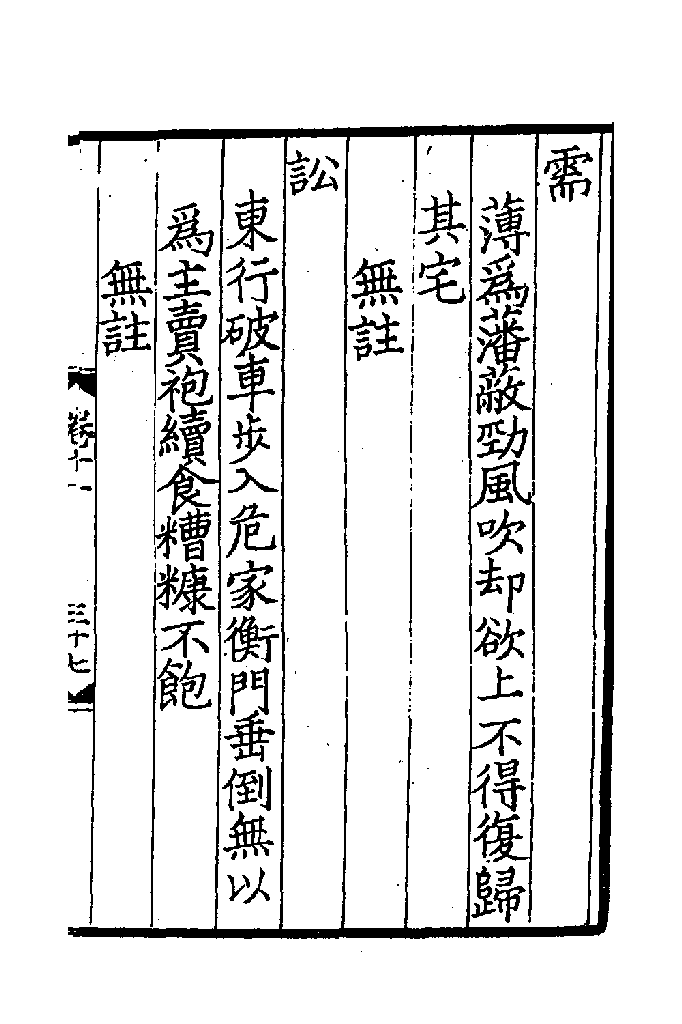 需
薄爲藩蔽勁風吹却欲上不得復歸
其宅
無註
訟
東行破車步入危家衡門垂倒無以
爲主賣袍續食糟糠不飽
無註
卷十一
三十七